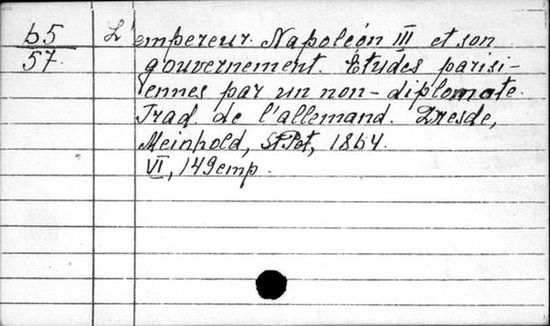 65 L'empereur Napoléon III et son
57. gouvernement. Études parisi-
ennes par un non-diplomate.
Trad. de l'allemand. Dresde,
Meinhold, St Pet, 1864.
VI, 149 emp.